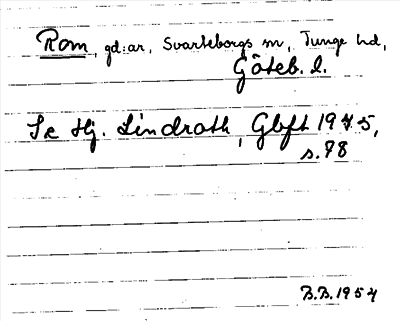 Rom, gd:ar, Svarteborgs sn, Tunge hd,
Göteb. l.
Se Hj. Lindroth, Gbft 1945,
s. 78
B.B. 1954